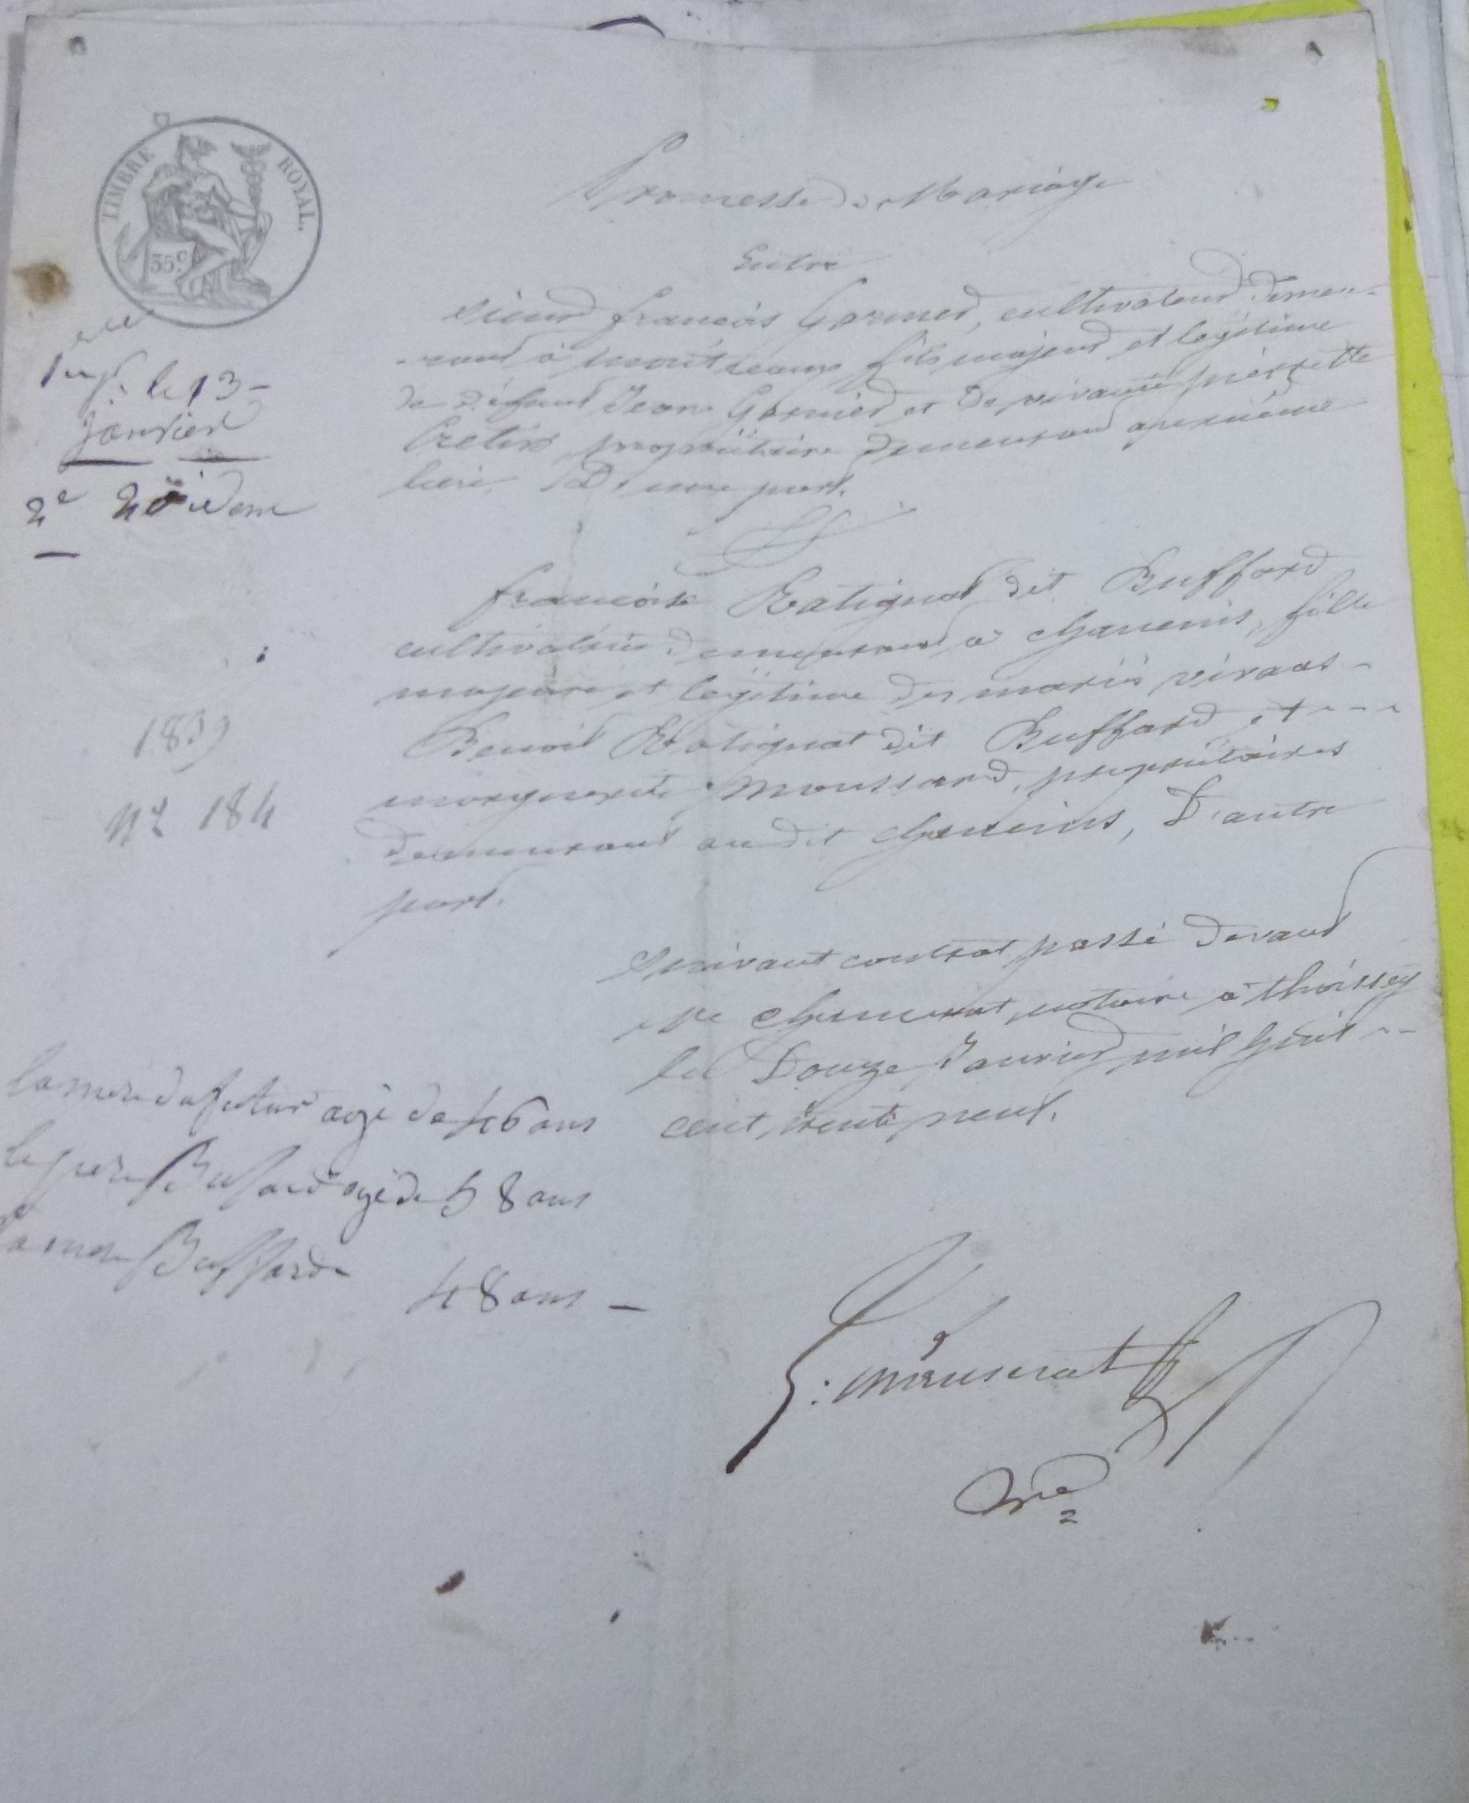 TIMBRE ROYAL.
35 c
Promesse de Mariage
Entre
Sieur françois Garnier, cultivateur demeu-
-rant à montceaux fils majeur et légitime
de défunt Jean Garnier et de vivante pierrette
Cretin propriétaire demeurant au même
lieu. D'une part.
Et
françoise Ratignat dit Buffard
cultivatrice demeurant à chaneins, fille
majeure et légitime des mariés vivants -
Benoit Ratignat dit Buffard et ---
marguerite Moussard, propriétaires
demeurant au dit chaneins, D'autre
part.
Suivant contrat passé devant
Me notaire à thoissey
le Douze Janvier mil huit --
cent trente neuf.
1re
le 13 -
Janvier
2e 20 idem
1839
No 184
la mere du futur agé de 46 ans
le pere Buffard agé de 58 ans
la mere Buffard 48 ans -